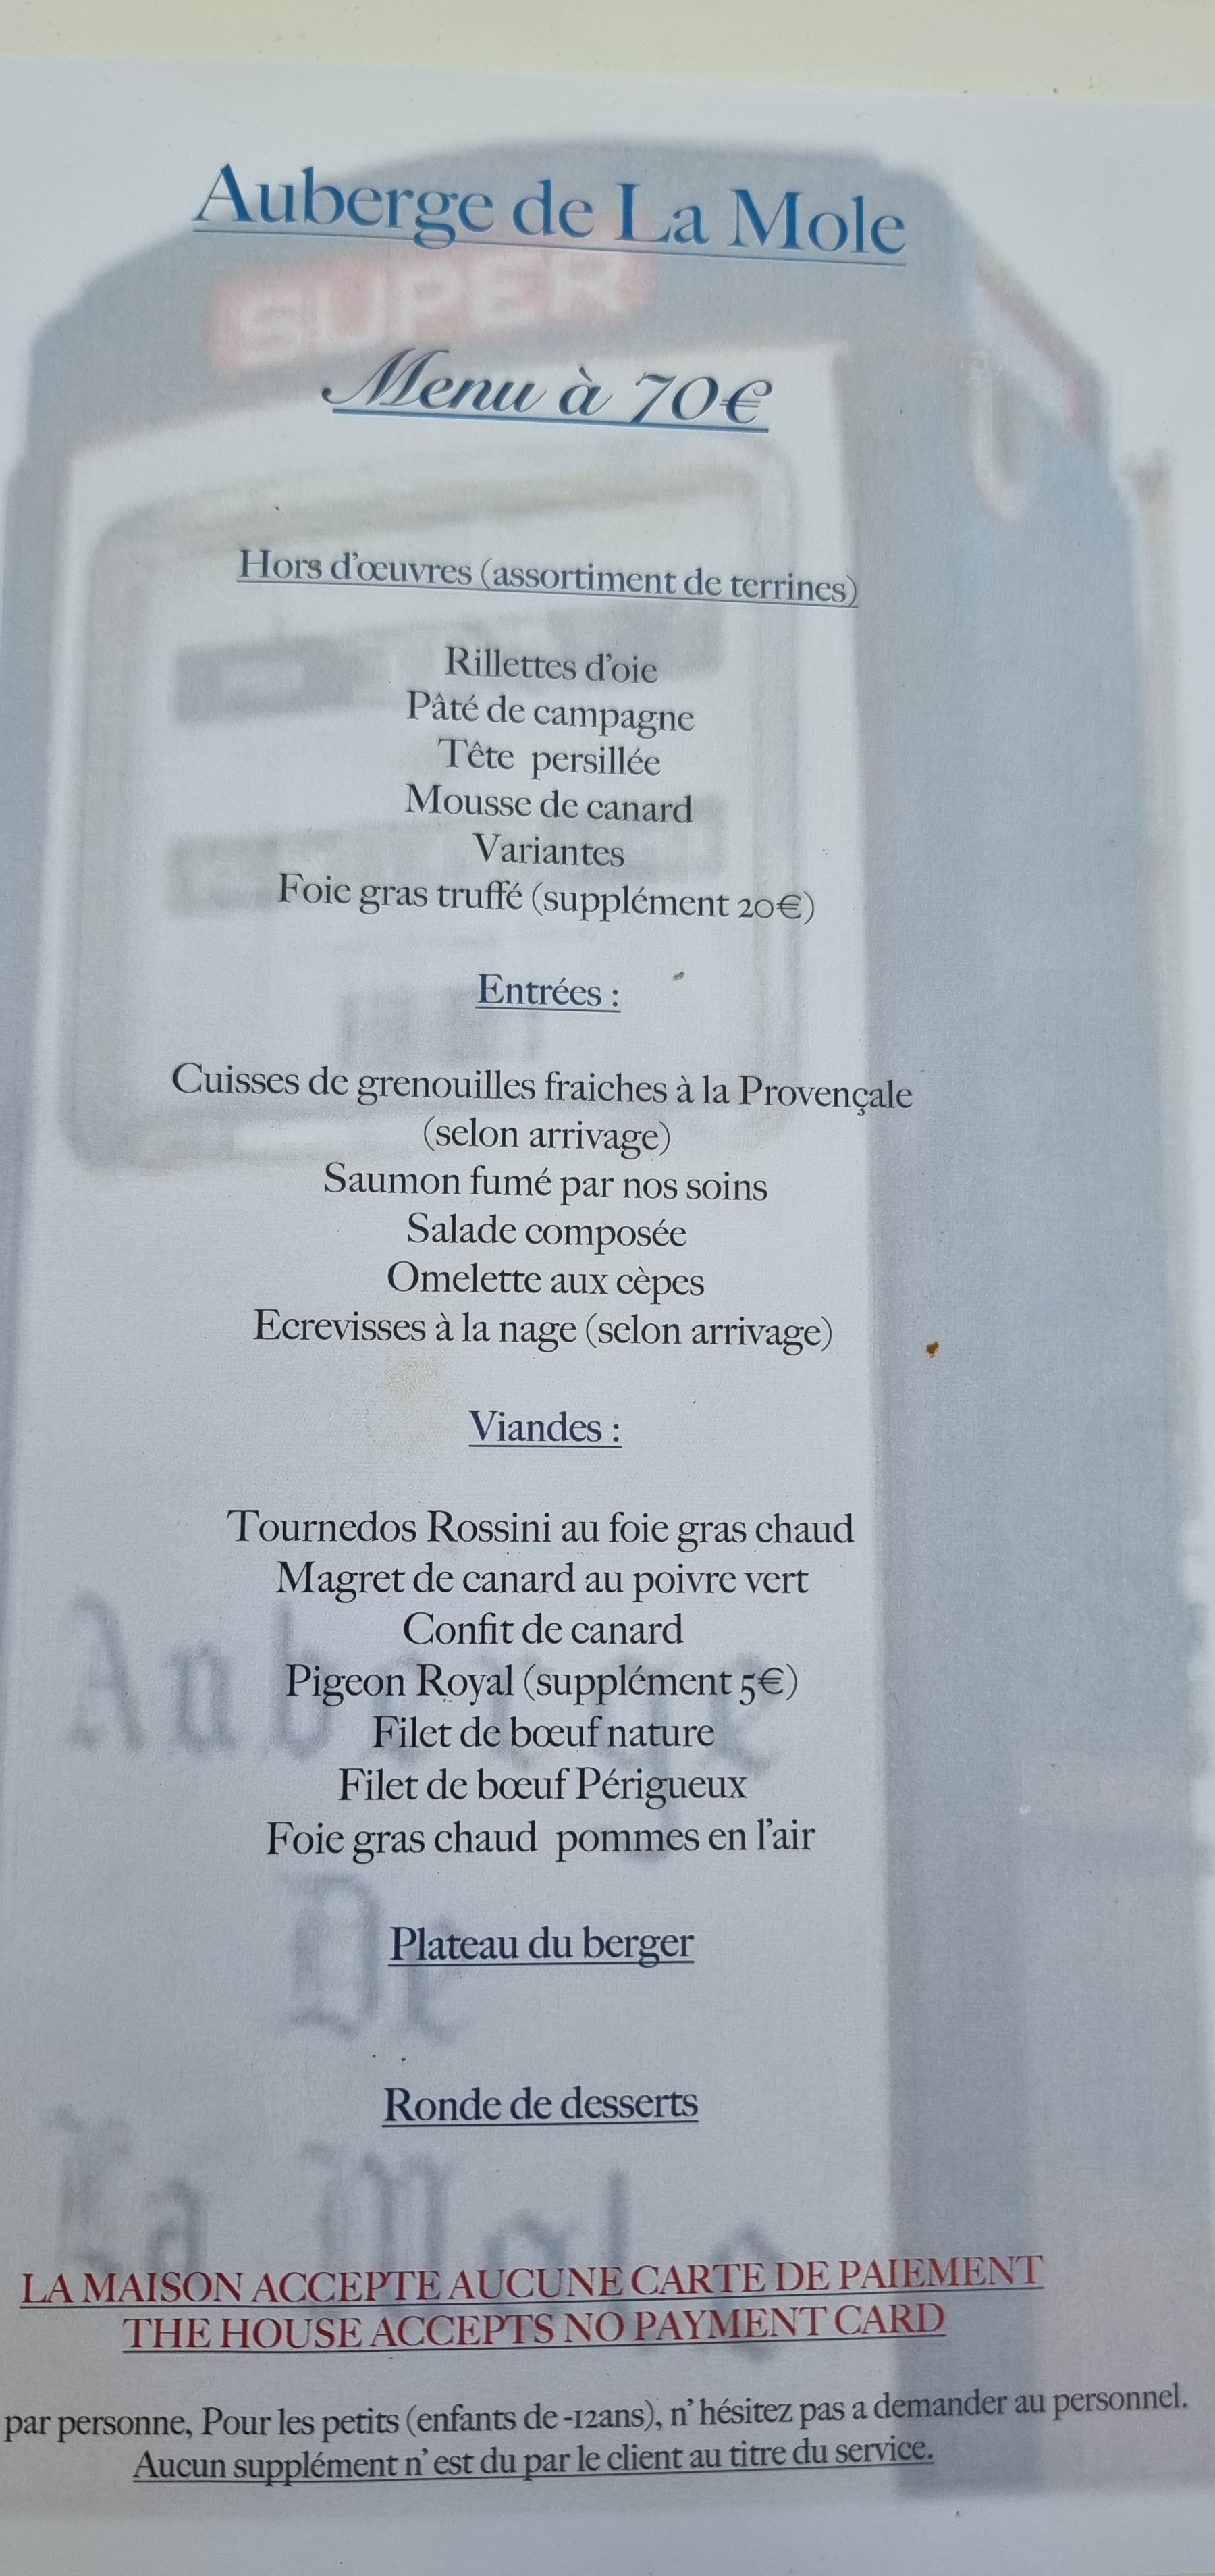 Auberge de La Mole
SUPER
Menu à 70€
Hors d'œuvres (assortiment de terrines)
Rillettes d'oie
Pâté de campagne
Tête persillée
Mousse de canard
Variantes
Foie gras truffé (supplément 20€)
Entrées :
Cuisses de grenouilles fraiches à la Provençale
(selon arrivage)
Saumon fumé par nos soins
Salade composée
Omelette aux cèpes
Ecrevisses à la nage (selon arrivage)
Viandes :
Tournedos Rossini au foie gras chaud
Magret de canard au poivre vert
Confit de canard
Auberge
Pigeon Royal (supplément 5€)
Filet de bœuf nature
Filet de bœuf Périgueux
Foie gras chaud pommes en l'air
De
Plateau du berger
Ronde de desserts
La Mole
LA MAISON ACCEPTE AUCUNE CARTE DE PAIEMENT
THE HOUSE ACCEPTS NO PAYMENT CARD
par personne, Pour les petits (enfants de -12ans), n' hésitez pas a demander au personnel.
Aucun supplément n' est du par le client au titre du service.